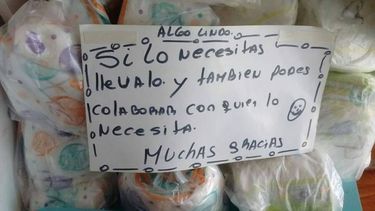 ALGO LINDO.
Si lo NECESiTAS
llevAlo. y tAMbieN podes
ColAboRAR CoN quieN lo
NECESiTA.
MuchAS gRACiAS